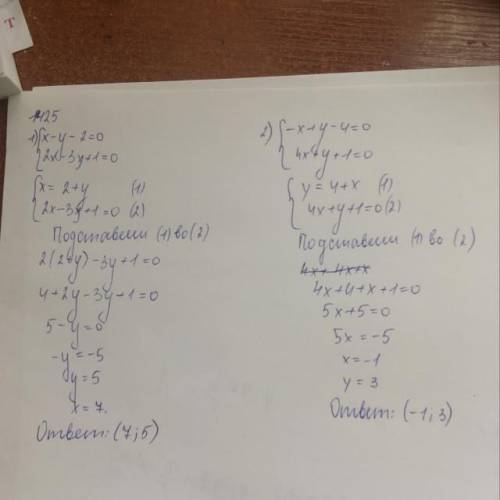 Т
1125
1) { x-y-2=0
2x-3y+1=0
{ x= 2+y (1)
2x-3y+1=0 (2)
Подставим (1) во (2)
2(2+y)-3y+1=0
4+2y-3y+1=0
5-y=0
-y=-5
y=5
x=7.
Ответ: (7;5)
2) { -x+y-4=0
4x+y+1=0
{ y=4+x (1)
4x+y+1=0 (2)
Подставим (1) во (2)
4x+4x+x
4x+4+x+1=0
5x+5=0
5x=-5
x=-1
y=3
Ответ: (-1;3)